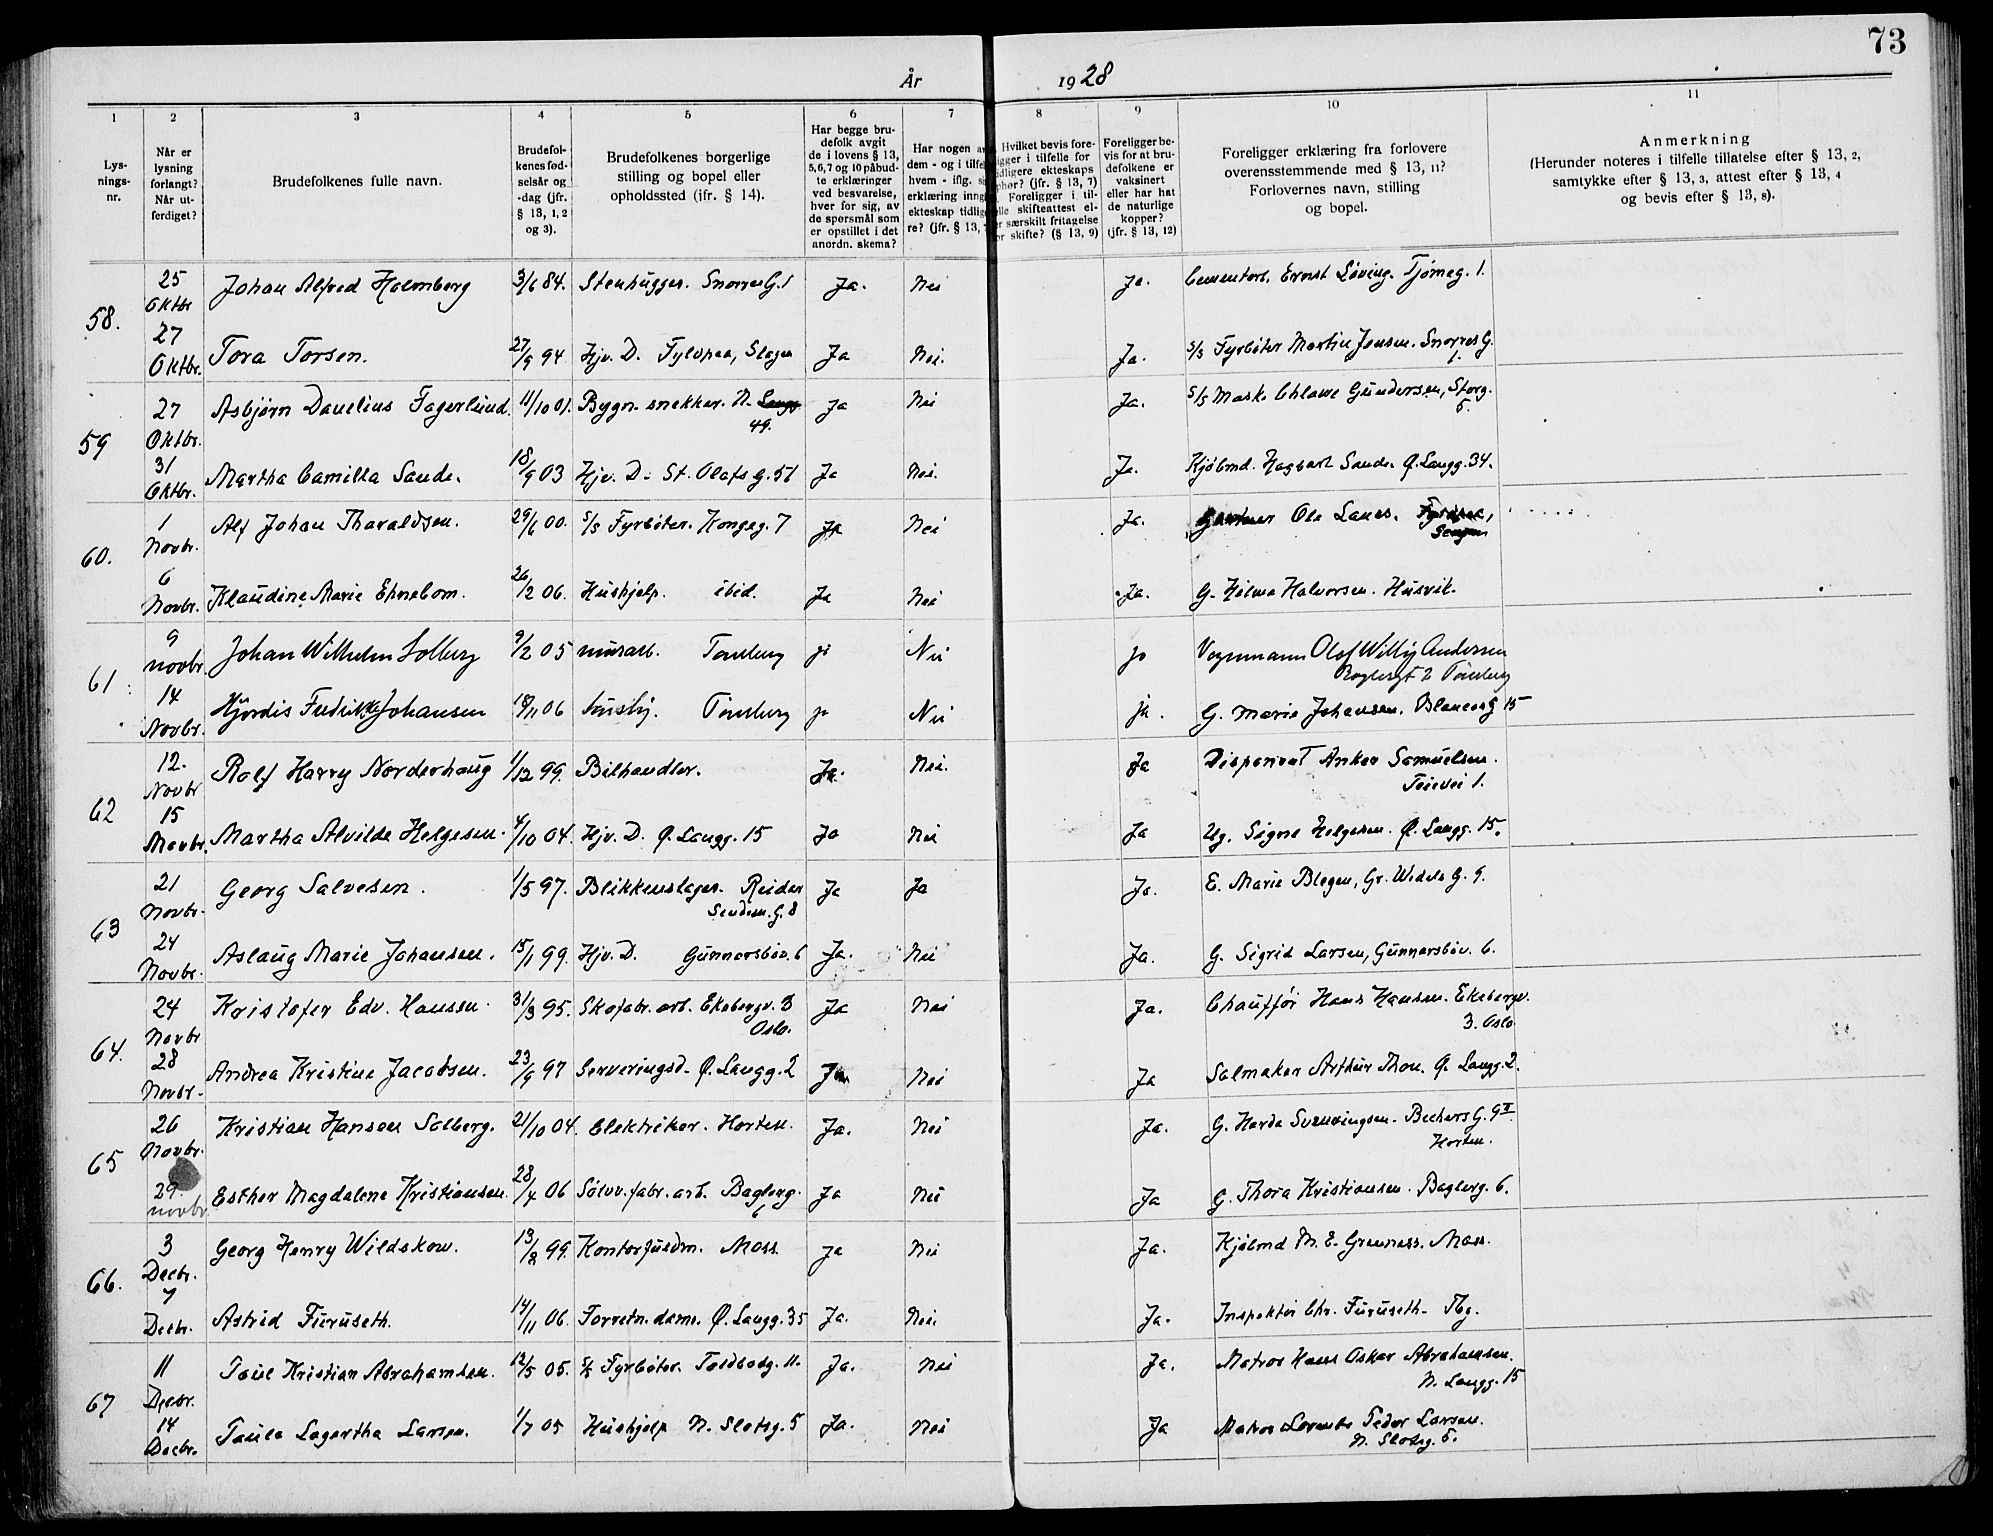 73
År 1928
1 2 3 4 5 6 7 8 9 10 11
Lysnings-nr.
Når er lysning forlangt? Når utferdiget?
Brudefolkenes fulle navn.
Brudefolkenes fødselsår og -dag (jfr. § 13, 1, 2 og 3).
Brudefolkenes borgerlige stilling og bopel eller opholdssted (jfr. § 14).
Har begge brudefolk avgit de i lovens § 13, 5, 6, 7 og 10 påbudte erklæringer ved besvarelse, hver for sig, av de spørsmål som er opstillet i det anordn. skema?
Har nogen av dem - og i tilfelle hvem - iflg. erklæring inngått ekteskap tidligere? (jfr. § 13,
Hvilket bevis foreligger i tilfelle for tidligere ekteskaps ophør? (jfr. § 13, 7) Foreligger i tilfelle skifteattest eller særskilt fritagelse for skifte? (§ 13, 9)
Foreligger bevis for at brudefolkene er vaksinert eller har hat de naturlige kopper? (jfr. § 13, 12)
Foreligger erklæring fra forlovere overensstemmende med § 13, 11? Forlovernes navn, stilling og bopel.
Anmerkning (Herunder noteres i tilfelle tillatelse efter § 13, 2, samtykke efter § 13, 3, attest efter § 13, 4 og bevis efter § 13, 8).
58. 25 Oktbr Johan Alfred Holmberg 3/6 84. Stenhugger. Snorres G. 1 Ja. Nei Ja. Cementarb. Ernst Løving. Tjømeg. 1.
27 Oktbr. Tora Torsen. 27/9 94 Hjv. D. Fylspaa, Slagen Ja Nei. Ja. S/S Fyrbøter Martin Jensen. Snorres G. 1.
59 27 Oktbr. Asbjørn Danelius Fagerlund. 11/10 01. Bygn. snekker. N. Langg. 49. Ja Nei Ja. S/S Mask. Gundersen, Storg. 5.
31 Oktbr. Martha Camilla Sande. 18/9 03 Hjv. D. St. Olafs g. 51 Ja Nei. Ja. Kjøbmd. Hagbart Sande. Ø. Langg. 34.
60. 1 Novbr. Alf Johan Tharaldsen. 29/6 00. S/S Fyrbøter. Kongeg. 7 Ja Nei Ja. Gartner Ole Laues.
6 Novbr. Klaudine Marie Ehnebom. 26/2 06. Hushjelp. ibid. Ja Nei Ja. G. Hilma Halvorsen. Husvik.
61. 9 novbr. Johan Wilhelm Solberg 9/2 05 murarb. Tønsberg ja Nei ja Vognmann Olaf Willy Andersen
Baglergt 2 Tønsberg
14 Novbr. Hjørdis Fredrikke Johansen 18/11 06 Tønsberg ja Nei ja. G. Marie Johansen. G 15
62 12. Novbr Rolf Harry Norderhaug 1/12 99. Bilhandler. Ja. Nei. Ja Disponent Anker Samuelsen.
Teievei 1.
15 Novbr. Martha Alvilde Helgesen. 4/10 04. Hjv. D. Ø. Langg. 15 Ja Nei Ja Ug. Signe Helgesen. Ø. Langg. 15.
63 21 Novbr. Georg Salvesen. 1/5 97. Blikkenslager. Reidar Sendem. G. 8 Ja Ja Ja. E. Marie Blegen, Gr. Wedels G. 9.
24 Novbr. Aslaug Marie Johansen. 15/1 99. Hjv. D. Gunnarsbøv. 6 Ja. Nei Ja. G. Sigrid Larsen, Gunnarsbøv. 6.
64. 24 Novbr Kristofer Edv. Hansen. 31/3 95. Skofabr. arb. Ekebergv. 3 Oslo. Ja Nei Ja. Chauffør Hans Hansen. Ekebergv. 3. Oslo
28 Novbr. Andrea Kristine Jacobsen. 23/9 97 Serveringsd. Ø. Langg. 2 Ja Nei Ja Salmaker Arthur Thon. Ø. Langg. 2.
65 26 Novbr. Kristian Hansen Solberg. 21/10 04. Elektriker. Horten. Ja. Nei Ja. G. Harda Svenningsen. Bechers G. 9 II. Horten.
29. novbr Esther Magdalene Kristiansen. 28/4 06 Sølvv. fabr. arb. Baglerg. 6 Ja Nei Ja G. Thora Kristiansen. Baglerg. 6.
66. 3 Decbr. Georg Henry Wildskow. 13/8 99. Kontorfuldm. Moss Ja Nei Ja. Kjøbmd M. E. Grenness. Moss.
7 Decbr. Astrid Furuseth. 14/11 06. Forretn. dame. Ø. Langg. 35 Ja. Nei. Ja. Inspektør Chr. Furuseth. Tbg.
67 11 Decbr. Paul Kristian Abrahamsen. 12/5 05. S/S Fyrbøter. Toldbodg. 11. Ja. Nei Ja. Matros Hans Oskar Abrahamsen.
N. Langg. 15
14 Decbr. Paula Lagertha Larsen. 1/7 05 Hushjelp N. Slotsg. 5 Ja. Nei Ja Matros Peder Larsen.
N. Slotsg. 5.